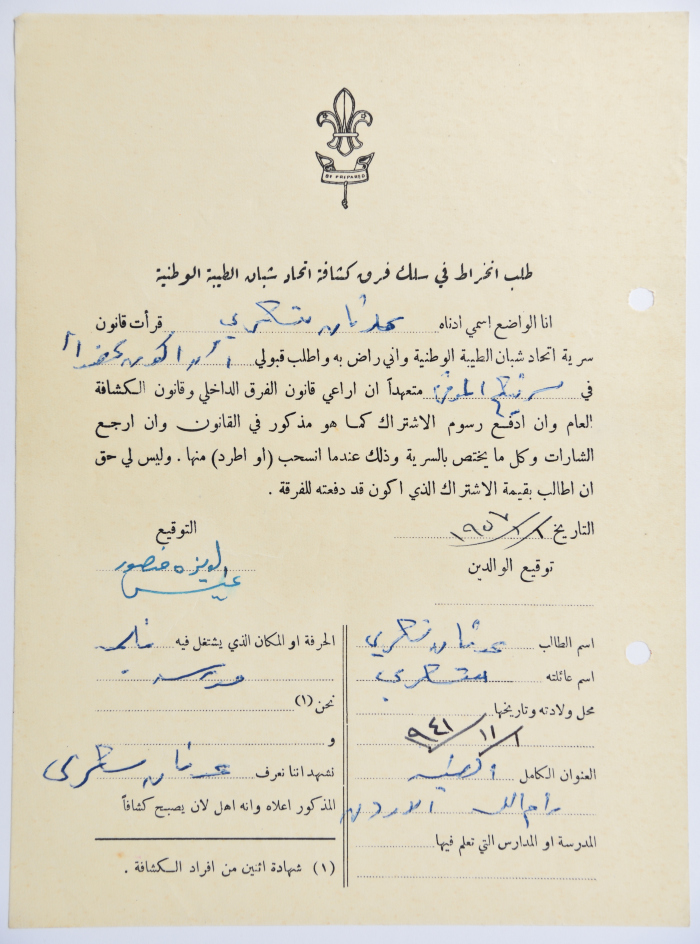 BE PREPARED
طلب انخراط في سلك فرق كشافة اتحاد شبان الطيبة الوطنية
انا الواضع اسمي ادناه عدنان شكري قرأت قانون
سرية اتحاد شبان الطيبة الوطنية واني راض به واطلب قبولي أن اكون عضوا
في متعهداً ان اراعي قانون الفرق الداخلي وقانون الكشافة
العام وان ادفع رسوم الاشتراك كما هو مذكور في القانون وان ارجع
الشارات وكل ما يختص بالسرية وذلك عندما انسحب (او اطرد) منها . وليس لي حق
ان اطالب بقيمة الاشتراك الذي اكون قد دفعته للفرقة .
التاريخ
التوقيع
توقيع الوالدين
منصور
اسم الطالب عدنان شكري
اسم عائلته شكري
محل ولادته وتاريخها
١ / ١١ / ٩٤١
العنوان الكامل الطيبة
رام الله الاردن
المدرسة او المدارس التي تعلم فيها
الحرفة او المكان الذي يشتغل فيه
مدرسة
نحن (١)
و
نشهد اننا نعرف عدنان شكري
المذكور اعلاه وانه اهل لان يصبح كشافاً
(١) شهادة اثنين من افراد الكشافة .